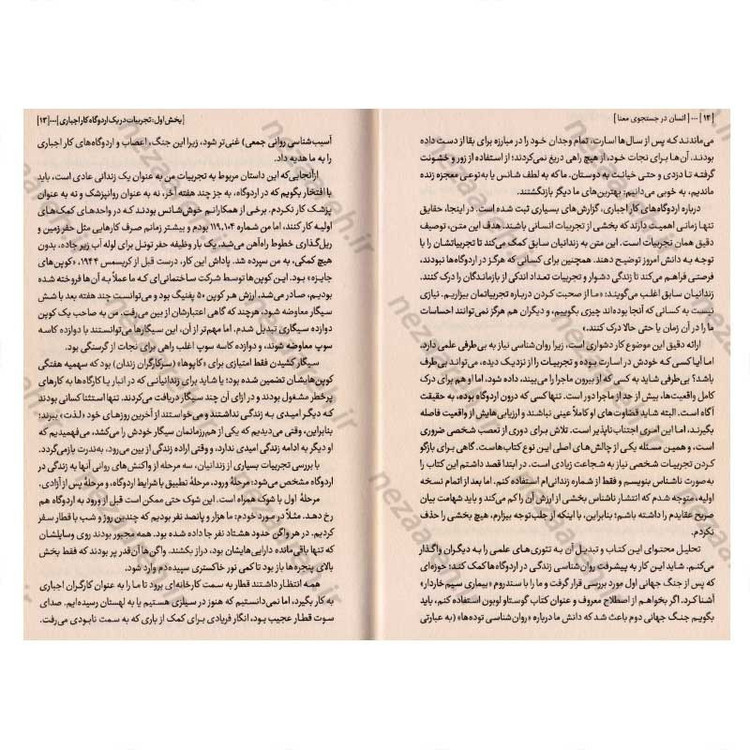 [۱۲]---[انسان در جستجوی معنا]
می‌ماندند که پس از سال‌ها اسارت، تمام وجدان خود را در مبارزه برای بقا از دست داده
بودند. آن‌ها برای نجات خود، از هیچ راهی دریغ نمی‌کردند؛ از استفاده از زور و خشونت
گرفته تا دزدی و حتی خیانت به دوستان. ما که به لطف شانس یا به‌نوعی معجزه زنده
ماندیم، به خوبی می‌دانیم: بهترین‌های ما دیگر بازنگشتند.
درباره اردوگاه‌های کار اجباری، گزارش‌های بسیاری ثبت شده است. در اینجا، حقایق
تنها زمانی اهمیت دارند که بخشی از تجربیات انسانی باشند. هدف این متن، توصیف
دقیق همان تجربیات است. این متن به زندانیان سابق کمک می‌کند تا تجربیاتشان را با
توجه به دانش امروز توضیح دهند. همچنین برای کسانی که هرگز در اردوگاه‌ها نبودند،
فرصتی فراهم می‌کند تا زندگی دشوار و تجربیات تعداد اندکی از بازماندگان را درک کنند.
زندانیان سابق اغلب می‌گویند: «ما از صحبت کردن درباره تجربیاتمان بیزاریم. نیازی
نیست به کسانی که آنجا بوده‌اند چیزی بگوییم، و دیگران هم هرگز نمی‌توانند احساسات
ما را در آن زمان یا حتی حالا درک کنند.»
ارائه دقیق این موضوع کار دشواری است، زیرا روان‌شناسی نیاز به بی‌طرفی علمی دارد،
اما آیا کسی که خودش در اسارت بوده و تجربیات را از نزدیک دیده، می‌تواند بی‌طرف
باشد؟ بی‌طرفی شاید به کسی که از بیرون ماجرا می‌بیند، داده شود، اما او هم برای درک
کامل واقعیت‌ها، بیش از حد از ماجرا دور است. تنها کسی که درون اردوگاه بوده، به حقیقت
آگاه است. البته شاید قضاوت‌های او کاملاً عینی نباشند و ارزیابی‌هایش از واقعیت فاصله
بگیرند، اما این امری اجتناب‌ناپذیر است. تلاش برای دوری از تعصب شخصی ضروری
است، و همین مسئله یکی از چالش‌های اصلی این نوع کتاب‌هاست. گاهی برای بازگو
کردن تجربیات شخصی نیاز به شجاعت زیادی است. در ابتدا قصد داشتم این کتاب را
به‌صورت ناشناس بنویسم و فقط از شماره زندانی‌ام استفاده کنم. اما بعد از اتمام نسخه
اولیه، متوجه شدم که انتشار ناشناس بخشی از ارزش آن را کم می‌کند و باید شهامت بیان
صریح عقایدم را داشته باشم؛ بنابراین، با اینکه از جلب توجه بیزارم، هیچ بخشی را حذف
نکردم.
تحلیل محتوای این کتاب و تبدیل آن به تئوری‌های علمی را به دیگران واگذار
می‌کنم. شاید این کار به پیشرفت روان‌شناسی زندگی در اردوگاه‌ها کمک کند؛ حوزه‌ای
که پس از جنگ جهانی اول مورد بررسی قرار گرفت و ما را با سندروم «بیماری سیم‌خاردار»
آشنا کرد. اگر بخواهم از اصطلاح معروف و عنوان کتاب گوستاو لوبون استفاده کنم، باید
بگویم جنگ جهانی دوم باعث شد که دانش ما درباره «روان‌شناسی توده‌ها» (به عبارتی
[بخش اول: تجربیات در یک اردوگاه کار اجباری]---[۱۳]
آسیب‌شناسی روانی جمعی) غنی‌تر شود، زیرا این جنگ، اعصاب و اردوگاه‌های کار اجباری
را به ما هدیه داد.
ازآنجایی‌که این داستان مربوط به تجربیات من به عنوان یک زندانی عادی است، باید
با افتخار بگویم که در اردوگاه، به جز چند هفته آخر، نه به عنوان روانپزشک و نه به عنوان
پزشک کار نکردم. برخی از همکارانم خوش‌شانس بودند که در واحدهای کمک‌های
اولیه کار کنند، اما من شماره ۱۱۹,۱۰۴ بودم و بیشتر زمانم صرف کارهایی مثل حفر زمین و
ریل‌گذاری خطوط راه‌آهن می‌شد. یک بار وظیفه حفر تونل برای لوله آب زیر جاده، بدون
هیچ کمکی، به من سپرده شد. پاداش این کار، درست قبل از کریسمس ۱۹۴۴، «کوپن‌های
جایزه» بود. این کوپن‌ها توسط شرکت ساختمانی‌ای که ما عملاً به آن‌ها فروخته شده
بودیم، صادر می‌شد. ارزش هر کوپن ۵۰ پفنیگ بود و می‌توانست چند هفته بعد با شش
سیگار معاوضه شود، هرچند که گاهی اعتبارشان از بین می‌رفت. من به صاحب یک کوپن
دوازده سیگاری تبدیل شدم. اما مهم‌تر از آن، این سیگارها می‌توانستند با دوازده کاسه
سوپ معاوضه شوند، و دوازده کاسه سوپ اغلب راهی برای نجات از گرسنگی بود.
سیگار کشیدن فقط امتیازی برای «کاپوها» (سرکارگران زندان) بود که سهمیه هفتگی
کوپن‌هایشان تضمین شده بود؛ یا شاید برای زندانیانی که در انبار یا کارگاه‌ها به کارهای
پرخطر مشغول بودند و در ازای آن چند سیگار دریافت می‌کردند. تنها استثنا کسانی بودند
که دیگر امیدی به زندگی نداشتند و می‌خواستند از آخرین روزهای خود «لذت» ببرند؛
بنابراین، وقتی می‌دیدیم که یکی از هم‌رزمانمان سیگار خودش را می‌کشد، می‌فهمیدیم که
او دیگر به ادامه زندگی امیدی ندارد، و وقتی اراده زندگی از بین می‌رود، به‌ندرت بازمی‌گردد.
با بررسی تجربیات بسیاری از زندانیان، سه مرحله از واکنش‌های روانی آنها به زندگی در
اردوگاه مشخص می‌شود: مرحلهٔ ورود، مرحلهٔ تطبیق با شرایط اردوگاه، و مرحلهٔ پس از آزادی.
مرحلهٔ اول با شوک همراه است. این شوک حتی ممکن است قبل از ورود به اردوگاه هم
رخ دهد. مثلاً در مورد خودم: ما هزار و پانصد نفر بودیم که چندین روز و شب با قطار سفر
کردیم. در هر واگن حدود هشتاد نفر جا داده شده بود. همه مجبور بودند روی وسایلشان
که تنها باقی‌مانده دارایی‌هایشان بود، دراز بکشند. واگن‌ها آن‌قدر پر بودند که فقط بخش
بالای پنجره‌ها باز بود تا کمی نور خاکستری سپیده‌دم وارد شود.
همه انتظار داشتند قطار به سمت کارخانه‌ای برود تا ما را به عنوان کارگران اجباری
به کار بگیرد، اما نمی‌دانستیم که هنوز در سیلزی هستیم یا به لهستان رسیده‌ایم. صدای
سوت قطار عجیب بود، انگار فریادی برای کمک از باری که به سمت نابودی می‌رفت.
nezaareh.ir